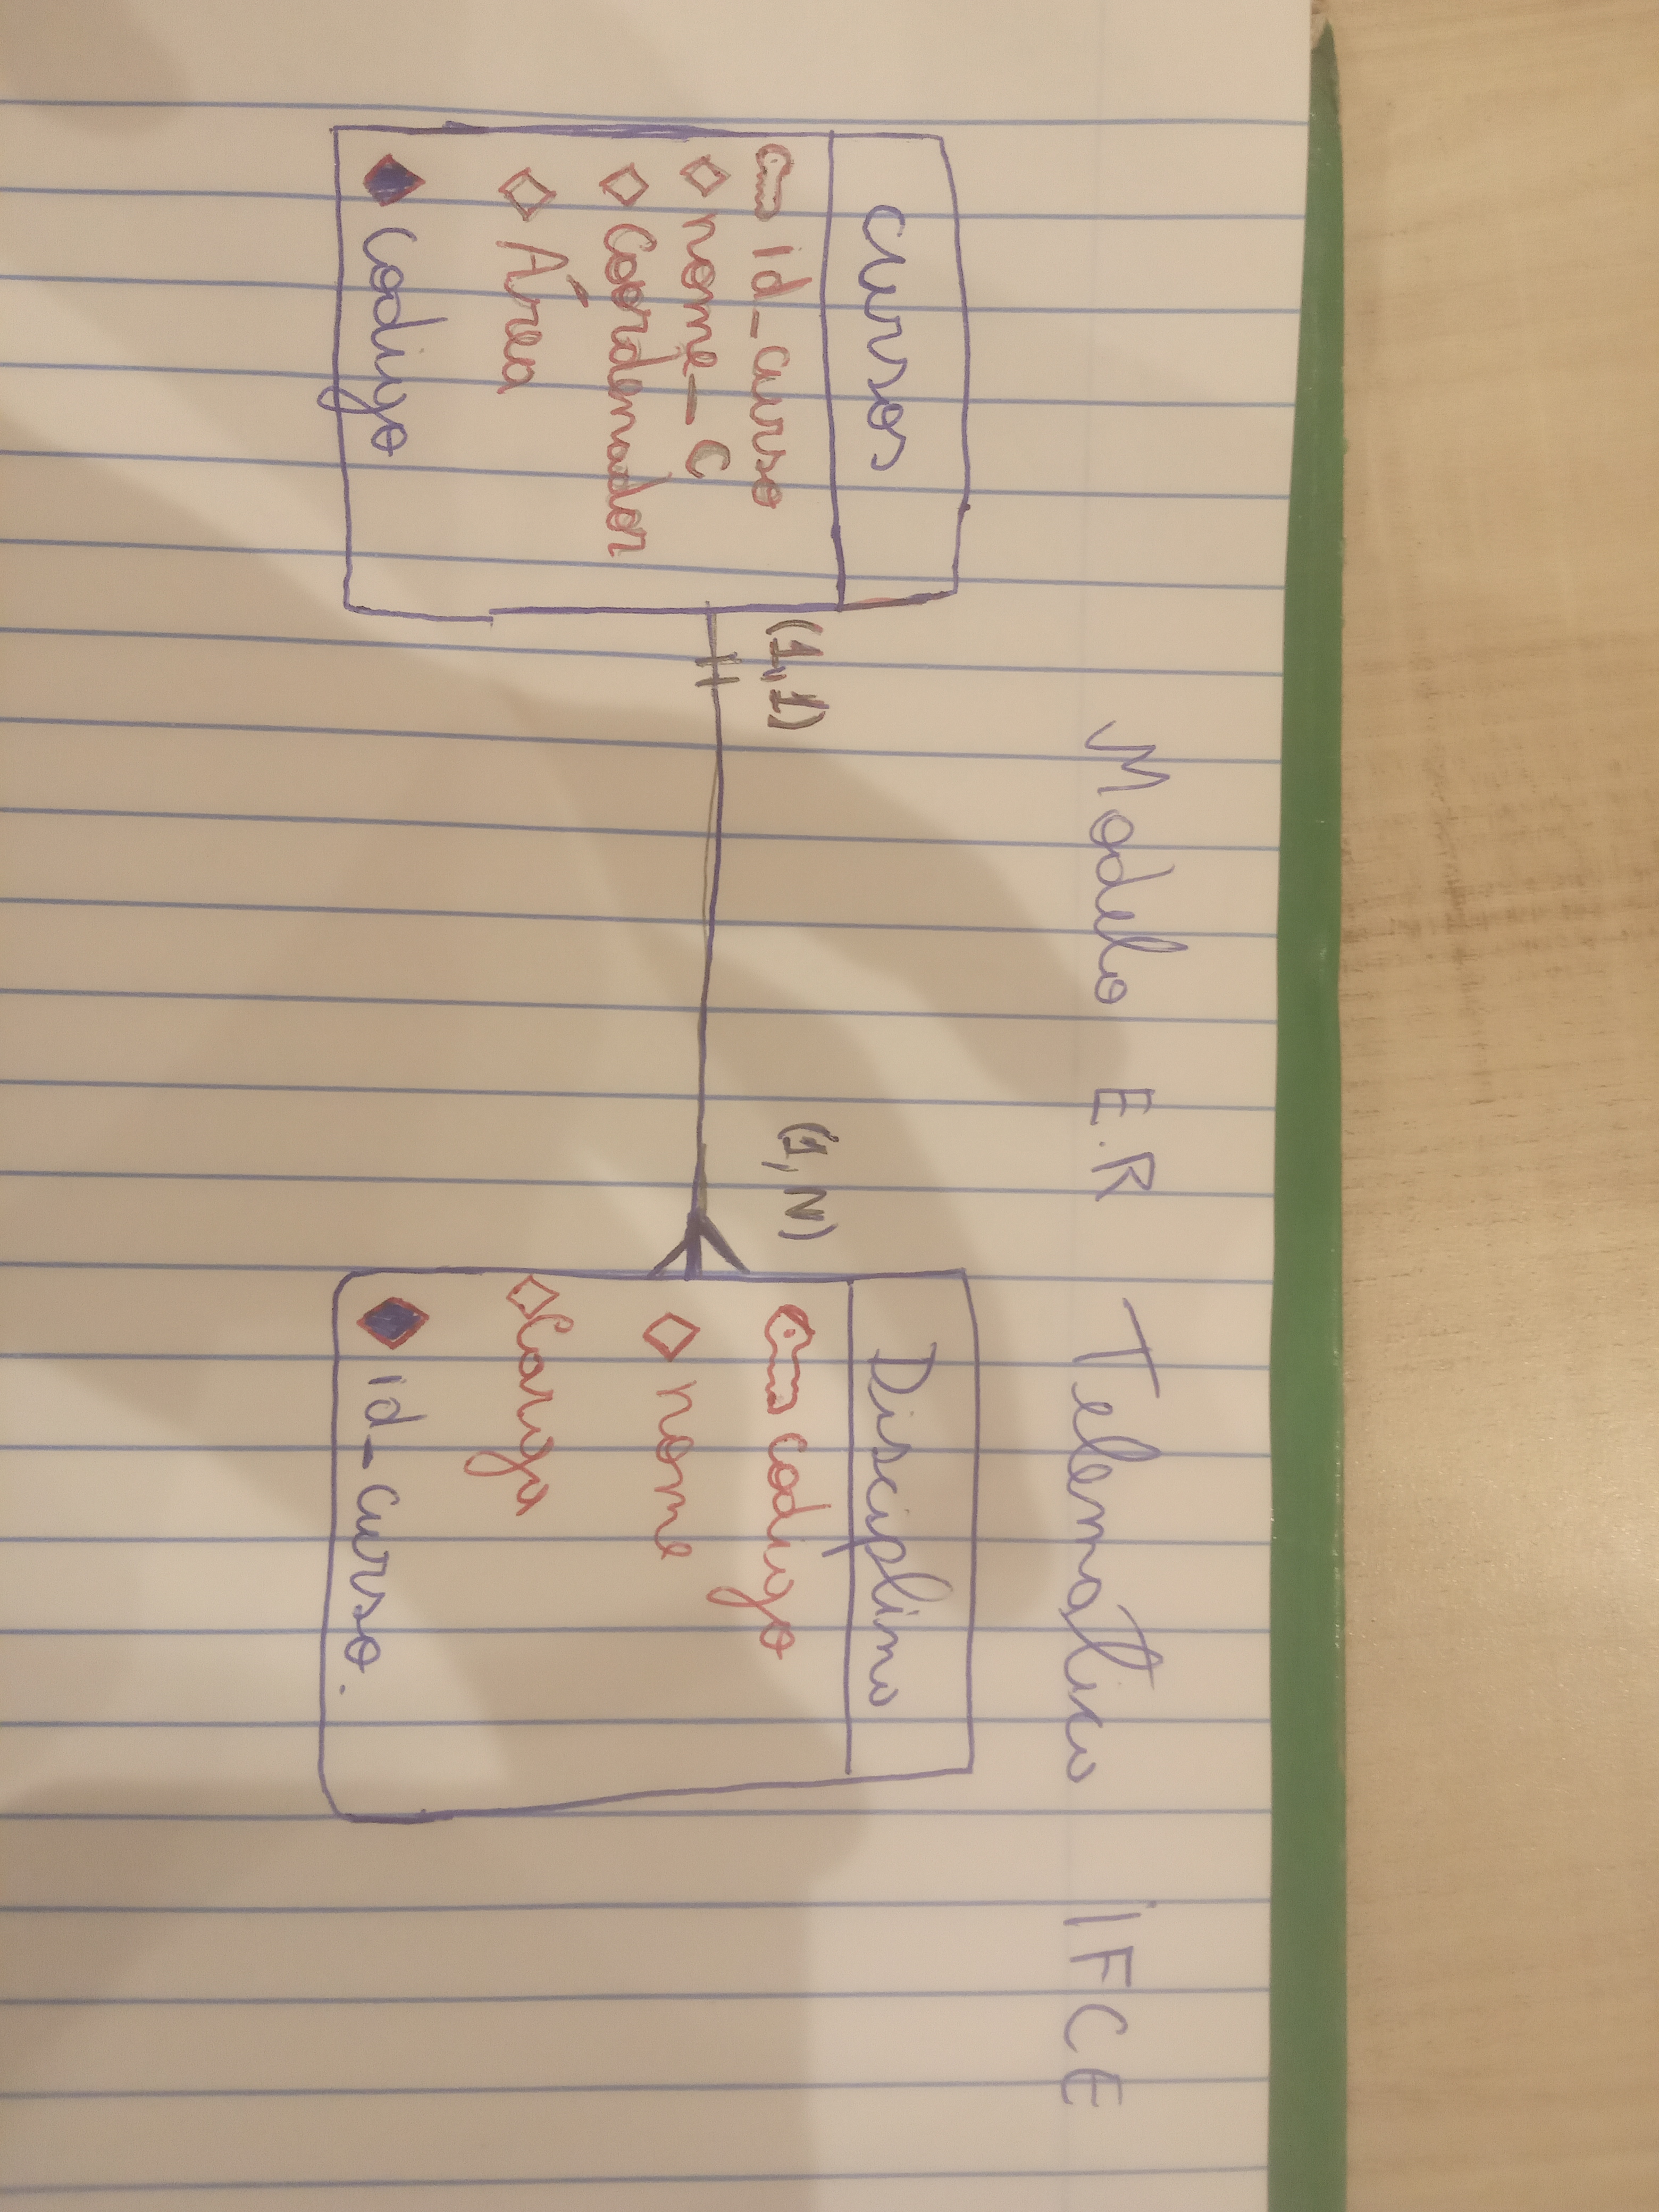 Modelo E.R Telematica iFCE
cursos
id_curso
nome_C
Coordenador
Área
codigo
(1,1)
(1,N)
Disciplina
codigo
nome
Carga
id_curso.